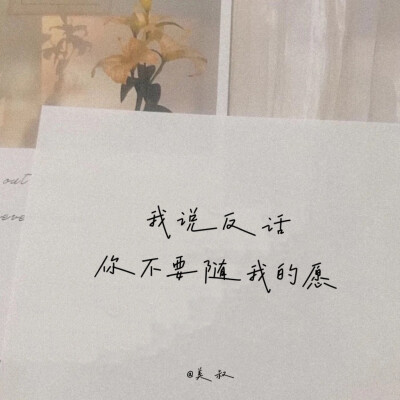 out
我说反话
你不要随我的愿
@美叔